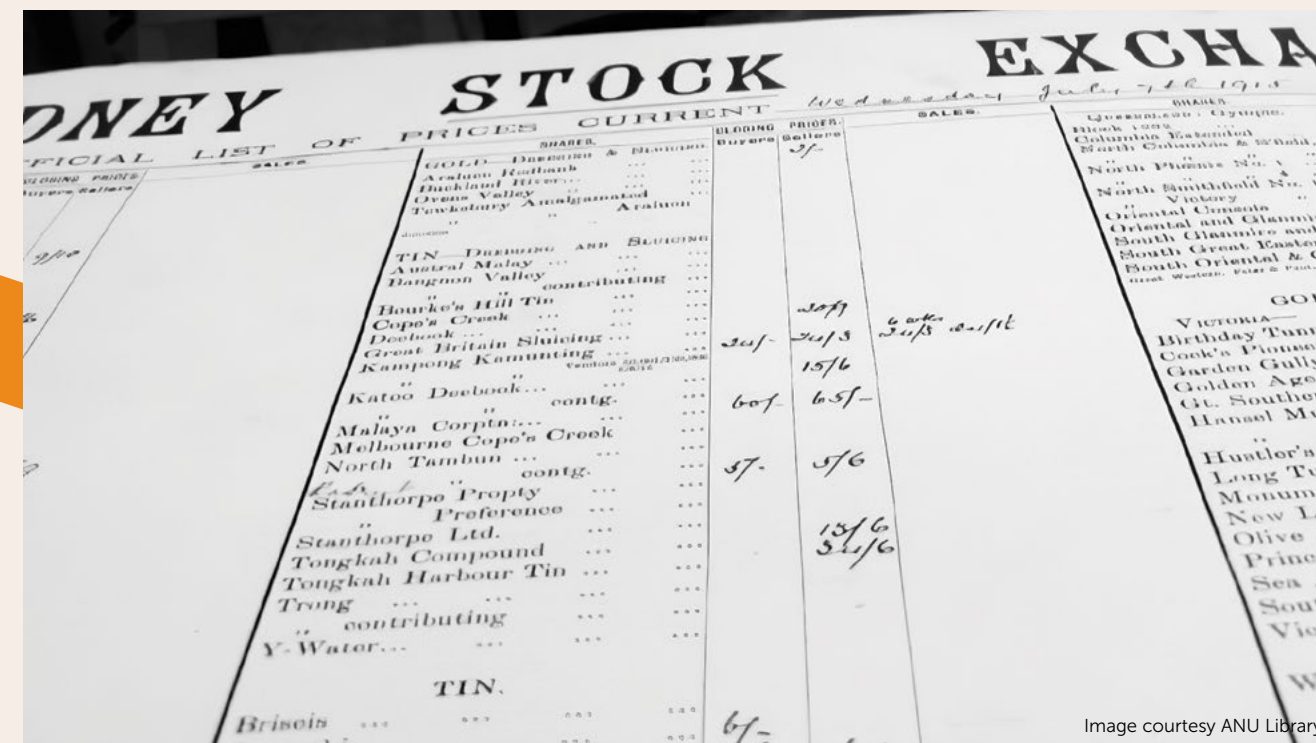 DNEY STOCK EXCHA
FFICIAL LIST OF PRICES CURRENT Wednesday July 7th 1915
SALES.
CLOSING PRICES.
Buyers Sellers
9/10
SHARES.
CLOSING PRICES.
Buyers Sellers
SALES.
GOLD—DREDGING & SLUICING.
2/-
Araluen Redbank ... ...
Buckland River... ... ...
Ovens Valley ... ...
Tewkesbury Amalgamated ...
" " Araluen
TIN—DREDGING AND SLUICING
Austral Malay ... ... ...
Bangnon Valley ... ...
" " contributing ...
Bourke's Hill Tin ... ...
Cope's Creek ... ... ...
Deebook ... ... ...
Great Britain Sluicing ... ...
Kampong Kamunting ... ...
15/6
Katoo Deebook... ... ...
" " contg. ...
60/- 65/-
Malaya Corptn:... ... ...
Melbourne Cope's Creek ...
North Tambun ... ... ...
5/- 5/6
" " contg. ...
Stanthorpe Propty ... ...
" Preference ... ...
Stanthorpe Ltd. ... ...
Tongkah Compound ... ...
Tongkah Harbour Tin ... ...
Trong ... ... ... ...
" contributing ... ...
Y-Water... ... ... ...
TIN.
Briseis ... ... ... ...
6/-
SHARES.
QUEENSLAND, Gympie.
Columbia Extended
North Columbia & Smithfield,
North Phoenix No. 1
North Smithfield No.
" Victory
Oriental Consols
Oriental and Glanmir
South Glanmire and
South Great Easter
South Oriental & G
GO
VICTORIA—
Birthday Tun
Cook's Pionee
Garden Gully
Golden Age
Gt. Southe
Hansel Mu
"
Hustler's
Long Tu
Monum
New L
Olive
Princ
Sea
Sou
Vic
W
Image courtesy ANU Library